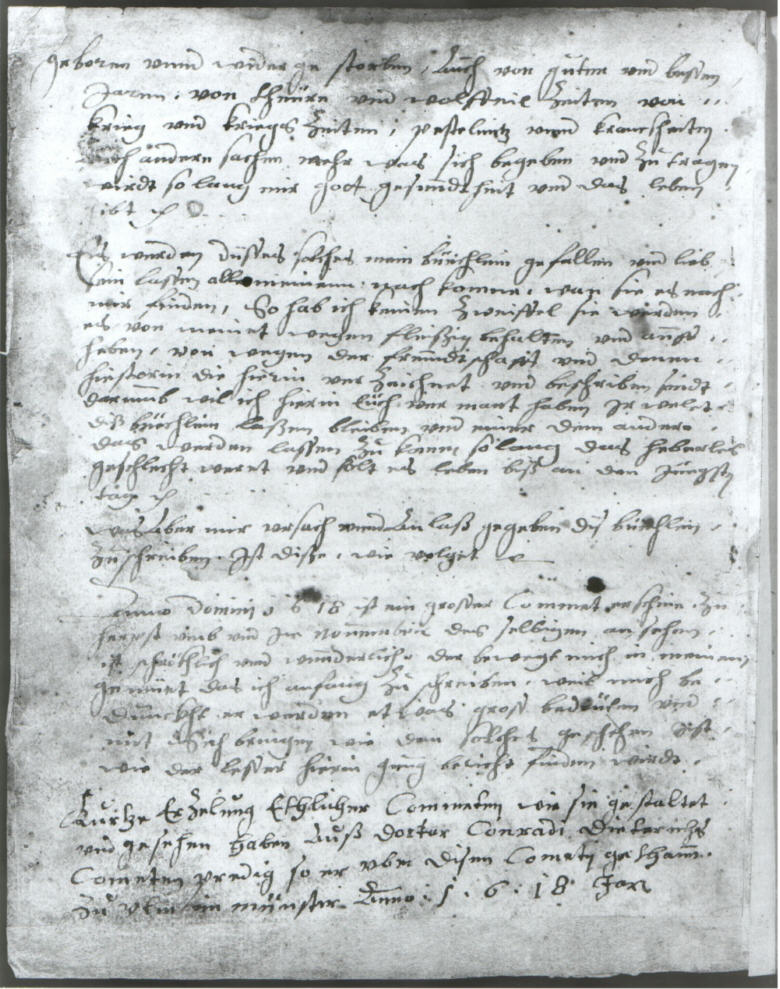 geboren vnnd wider ge storben, Auch von guten vnd bessen
Jaren, von theüre vnd wolffeile Zeiten von
krieg vnd kriegs Zeiten, pestelentz vnnd kranckheiten
auch andere sachen mehr was sich begeben vnd zu tragen
wirdt so lang mir gott gesundtheit vnd das leben
gibt
Es werden disses solches mein büechlein gefallen vnd lieb
sein lassen alle meine nach komne, wan sie es nach
mir finden, So hab ich keinen Zweiffel sie werden
es von meinet wegen fleissig behalten vnd auff
heben, von wegen der freündtschafft vnd denen
hiestorin die hierin ver Zeichnet vnd beschriben seindt
darumb wil ich hierin eüch ver mant haben Ir welet
diß büechlein laßen bleiben vnd einer dem andern
das werden lassen zu komen solang das heberles
geschlecht weret vnd solt es leben biß an den Jüngsten
tag
was aber mir vrsach vnnd anlaß gegeben dis büechlin
zu schreiben. Ist diße, wie volget
Anno Domini 1618 ist ein grosser Commet erschine zu
herpst vmb vnd Im nouember des selbigen an sehen
ist schröcklich vnd wunderlich, der bewegt mich in meinem
gemüet das ich anfang zu schreiben, weil mich be
dunckht er werden etwas gross bedeüten vnd
mit sich bringen wie dan solches geschehen ist
wie der lesser hierin gnug bericht finden wirdt
Kurtze Erzelung Ethlicher Commeten wie sie gestaltet
vnd gesehen haben Auß doctor Conradi Dieterichs
Cometen predig so er vber disen Comett gethann
zu vlm im münster Anno. 1. 6. 18 Jar